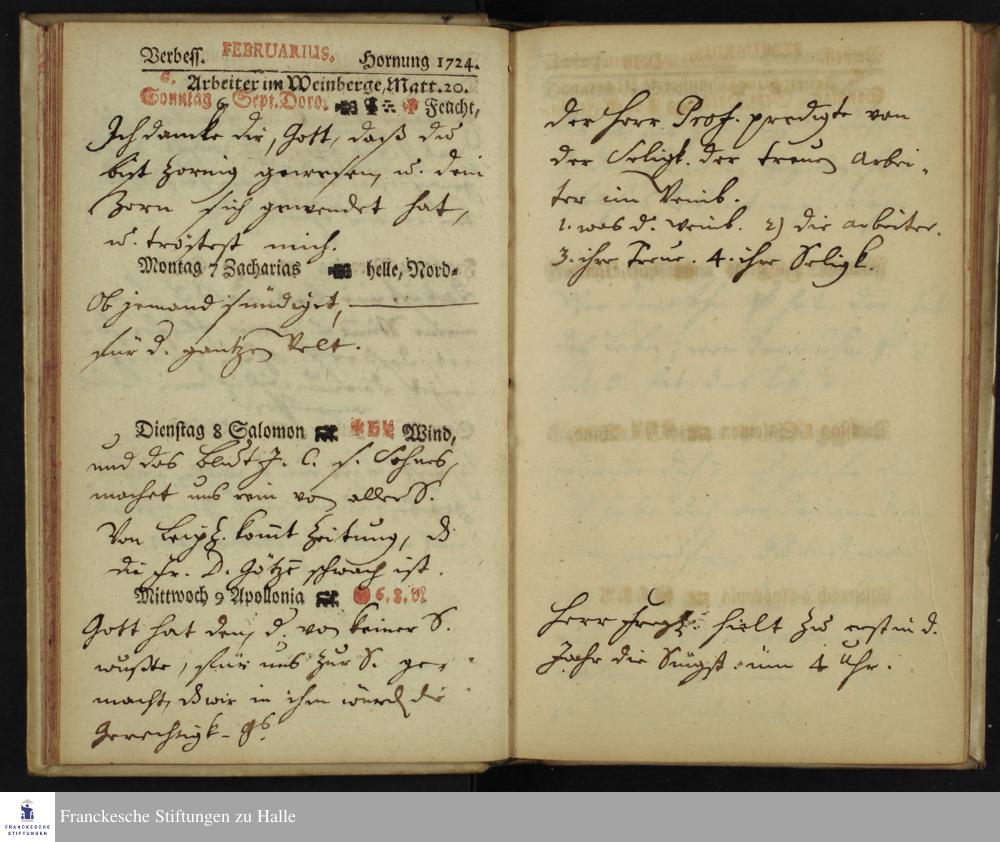 Verbess. FEBRUARIUS. Hornung 1724.
6. Arbeiter im Weinberge, Matt. 20.
Sonntag 6 Sept. Doro. Feucht,
Ich dancke dir, Gott, daß du
bist zornig gewesen, u. dein
Zorn sich gewendet hat,
u. tröstest mich.
Montag 7 Zacharias helle, Nord-
Ob jemand sündiget,
für d. gantze Welt.
Dienstag 8 Salomon Wind,
und das Blut J. C. s. Sohnes,
machet uns rein von aller S.
Von Leipz. komt Zeitung, d
die Fr. D. Götze schwach ist.
Mittwoch 9 Apollonia 6. 8. N
Gott hat den, d. von keiner S.
wußte, für uns zur S. ge-
macht, d wir in ihm würd die
Gerechtigk-
der Herr Prof. predigte von
der Seligk. der treuen Arbei-
ter im Weinb.
1. was d. Weinb. 2) die arbeiter.
3. ihre Treue. 4. ihre Seligk.
Herr hielt zu erst in d.
Jahr die Singst. üm 4 Uhr.
FRANCKESCHE
STIFTUNGEN
Franckesche Stiftungen zu Halle